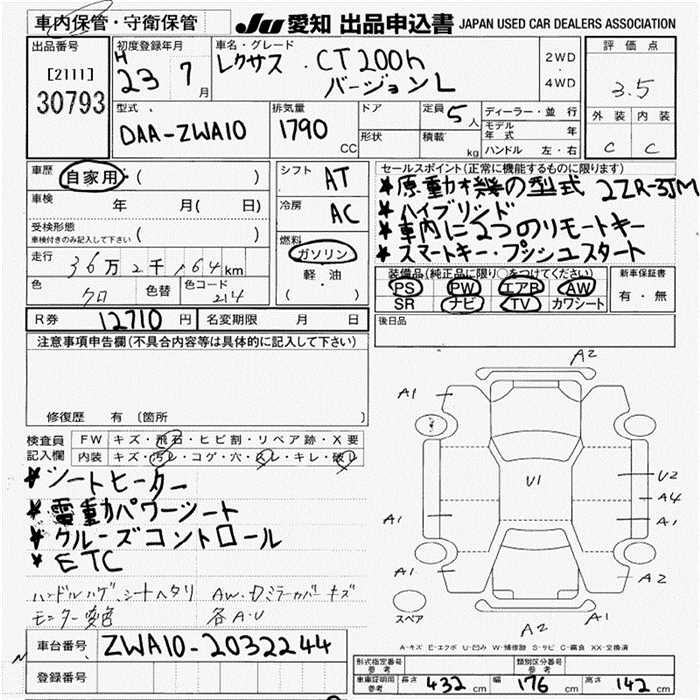 車内保管・守衛保管
JU 愛知 出品申込書 JAPAN USED CAR DEALERS ASSOCIATION
出品番号
[2111]
30793
初度登録年月
H 23 7 月
車名・グレード
レクサス . CT200h
バージョンL
2WD
・
4WD
評価点
3.5
外装 内装
C C
型式
DAA-ZWA10
排気量
1790 CC
ドア
形状
定員 5 人
積載 kg
ディーラー・並行
モデル年式 年
ハンドル 左・右
車歴 自家用 ( )
車検 年 月( 日)
受検形態
車検付きのみ記入して下さい ( )
走行 36万2千164km
色 クロ 色替 色コード 214
シフト AT
冷房 AC
燃料
ガソリン
軽・油
( )
セールスポイント(正常に機能するものに限ります)
★原動機の型式 2ZR-3JM
★ハイブリッド
★車内に2つのリモートキー
★スマートキー・プッシュスタート
装備品(純正品に限り○をつけてください)
PS PW エアB AW
SR ナビ TV カワシート
新車保証書
有・無
R券 12710 円 名変期限 月 日
後日品
注意事項申告欄(不具合内容等は具体的に記入して下さい)
修復歴 有 〔箇所 〕
検査員記入欄
FW キズ・飛石・ヒビ割・リペア跡・X要
内装 キズ・汚レ・コゲ・穴・スレ・キレ・破レ
★シートヒーター
★電動パワーシート
★クルーズコントロール
★ETC
ハンドルハゲ、シートヘタリ AW・Dミラーカバーキズ
モニター変色 各A・U
A2
A1
U1
U2
A4
A1
A1
A1
A2
スペア
A2
A1
A・キズ E・エクボ U・凹み W・補修跡 S・サビ C・腐食 XX・交換済
車台番号 ZWA10-2032244
登録番号
形式指定番号 参考
類別区分番号 参考
車庫証明用 参考 長さ 432 cm 幅 176 cm 高さ 142 cm